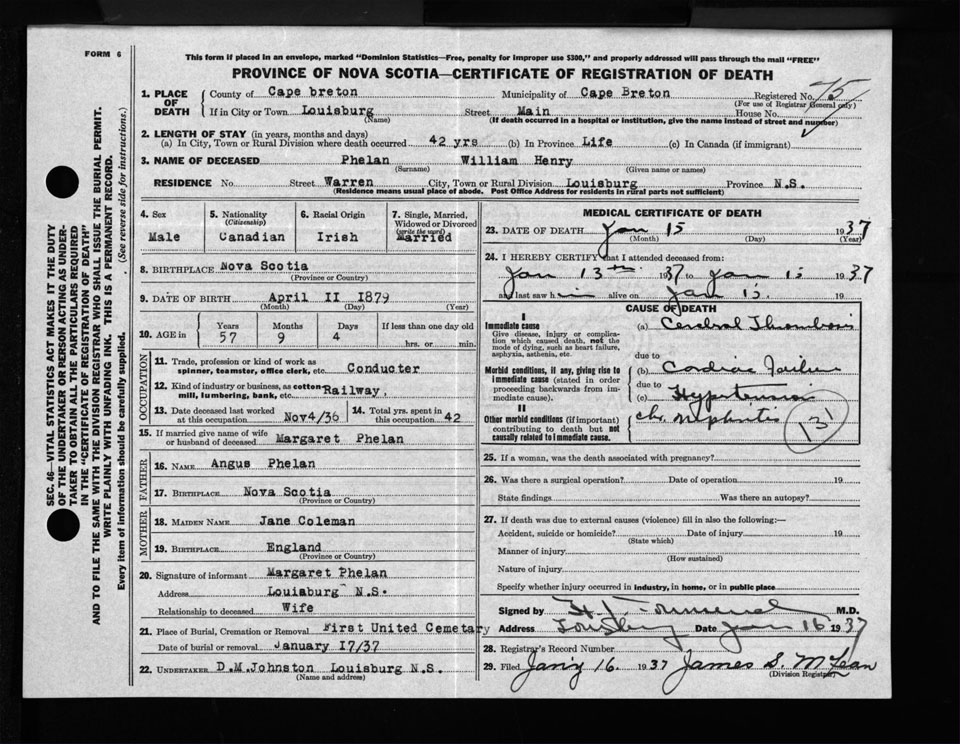 FORM 6
This form if placed in an envelope, marked "Dominion Statistics—Free, penalty for improper use $300," and properly addressed will pass through the mail "FREE"
PROVINCE OF NOVA SCOTIA—CERTIFICATE OF REGISTRATION OF DEATH
SEC. 46—VITAL STATISTICS ACT MAKES IT THE DUTY
OF THE UNDERTAKER OR PERSON ACTING AS UNDER-
TAKER TO OBTAIN ALL THE PARTICULARS REQUIRED
IN THE "CERTIFICATE OF REGISTRATION OF DEATH"
AND TO FILE THE SAME WITH THE DIVISION REGISTRAR WHO SHALL ISSUE THE BURIAL PERMIT.
WRITE PLAINLY WITH UNFADING INK. THIS IS A PERMANENT RECORD.
Every item of information should be carefully supplied. (See reverse side for instructions.)
1. PLACE OF DEATH
County of Cape breton Municipality of Cape Breton Registered No. 75
(For use of Registrar General only)
If in City or Town Louisburg Street Main House No.
(Name) (If death occurred in a hospital or institution, give the name instead of street and number)
2. LENGTH OF STAY (in years, months and days)
(a) In City, Town or Rural Division where death occurred 42 yrs (b) In Province Life (c) In Canada (if immigrant)
3. NAME OF DECEASED Phelan William Henry
(Surname) (Given name or names)
RESIDENCE No. Street Warren City, Town or Rural Division Louisburg Province N.S.
(Residence means usual place of abode. Post Office Address for residents in rural parts not sufficient)
4. Sex
Male
5. Nationality
(Citizenship)
Canadian
6. Racial Origin
Irish
7. Single, Married,
Widowed or Divorced
(write the word)
Married
8. BIRTHPLACE Nova Scotia
(Province or Country)
9. DATE OF BIRTH April II 1879
(Month) (Day) (Year)
10. AGE in
Years Months Days If less than one day old
57 9 4 hrs. or min.
OCCUPATION
11. Trade, profession or kind of work as
spinner, teamster, office clerk, etc. Conducter
12. Kind of industry or business, as cotton
mill, lumbering, bank, etc. Railway,
13. Date deceased last worked
at this occupation Nov4/36
14. Total yrs. spent in
this occupation 42
15. If married give name of wife
or husband of deceased Margaret Phelan
FATHER
16. NAME Angus Phelan
17. BIRTHPLACE Nova Scotia
(Province or Country)
MOTHER
18. MAIDEN NAME Jane Coleman
19. BIRTHPLACE England
(Province or Country)
20. Signature of informant Margaret Phelan
Address Louisburg N.S.
Relationship to deceased Wife
21. Place of Burial, Cremation or Removal First United Cemetary
Date of burial or removal January I7/37
22. UNDERTAKER D.M.Johnston Louisburg N.S.
(Name and address)
MEDICAL CERTIFICATE OF DEATH
23. DATE OF DEATH Jan 15 1937
(Month) (Day) (Year)
24. I HEREBY CERTIFY that I attended deceased from:
Jan 13th 1937 to Jan 15 1937
and last saw him alive on Jan 15. 19
CAUSE OF DEATH
I
Immediate cause
Give disease, injury or complica-
tion which caused death, not the
mode of dying, such as heart failure,
asphyxia, asthenia, etc.
(a) Cerebral Thrombosis
due to
Morbid conditions, if any, giving rise to
immediate cause (stated in order
proceeding backwards from im-
mediate cause).
(b) Cardiac Failure
due to
(c) Hypertension
II
Other morbid conditions (if important)
contributing to death but not
causally related to immediate cause.
chr. nephritis
131
25. If a woman, was the death associated with pregnancy?
26. Was there a surgical operation? Date of operation 19
State findings Was there an autopsy?
27. If death was due to external causes (violence) fill in also the following:—
Accident, suicide or homicide? Date of injury 19
(State which)
Manner of injury
(How sustained)
Nature of injury
Specify whether injury occurred in industry, in home, or in public place
Signed by M.D.
Address Louisburg Date Jan 16 1937
28. Registrar's Record Number
29. Filed Jan'y 16. 1937 James S. McLean
(Division Registrar)